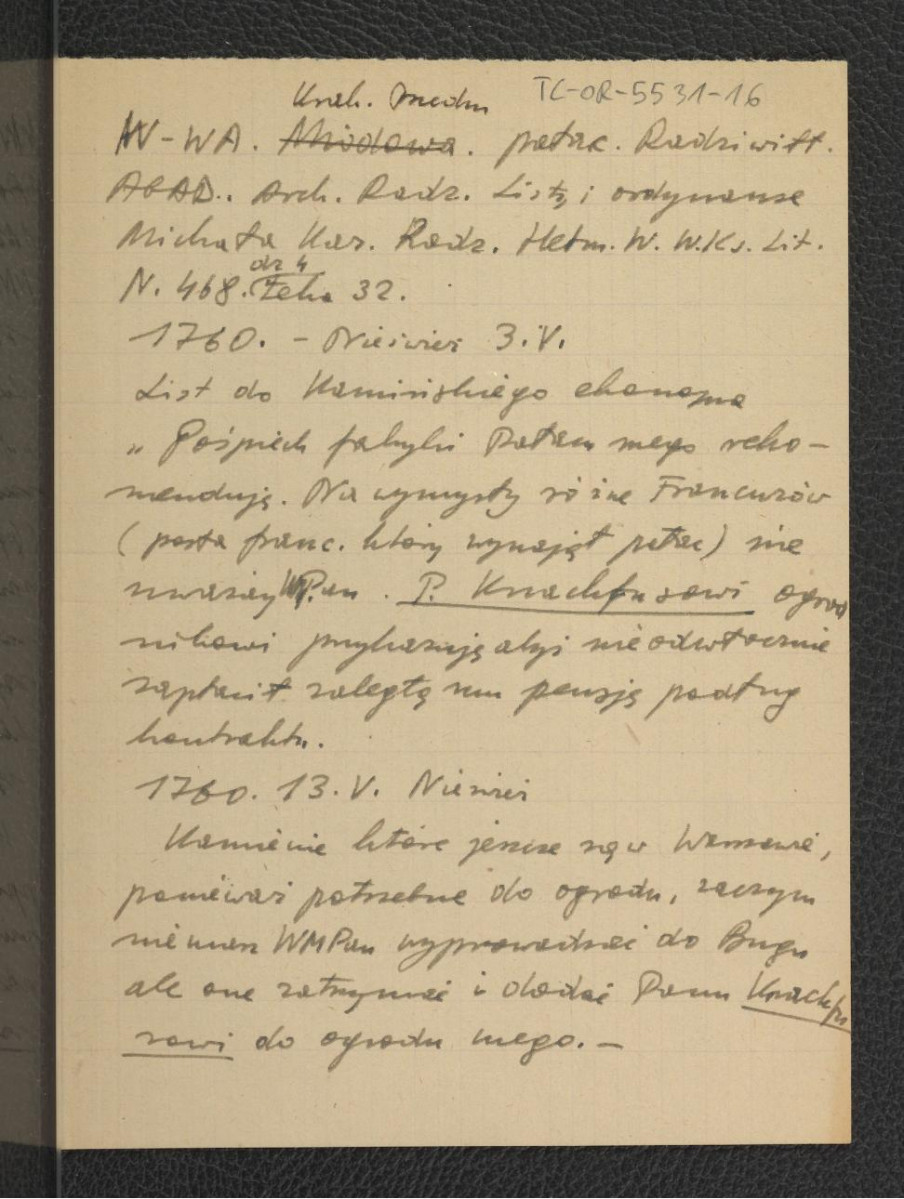 Krak. Przedm TC-OR-5531-16
W-WA. Miodowa. pałac. Radziwiłł.
AGAD.. Arch. Radz. Listy i ordynanse
Michała Kaz. Radz. Hetm. W. W.Ks. Lit.
dz 4
N. 468. Teka 32.
1760. - Nieśwież 3.V.
List do Kamińskiego ekonoma
„ Pośpiech fabryki Pałacu mego reko-
menduję. Na wymysły różne Francuzów
(posła franc. który wynajął pałac) nie
uważaj WPan. P. Knackfusowi ogrod
nikowi przykazuję abyś nieodwłocznie
zapłacił zaległą mu pensję podług
kontraktu.
1760. 13. V. Nieśwież
Kamienie które jeszcze są w Warszawie,
ponieważ potrzebne do ogrodu, zaczym
nie masz WMPan wyprowadzać do Bugu
ale one zatrzymać i dodać Panu Knackfu
sowi do ogrodu mego. -